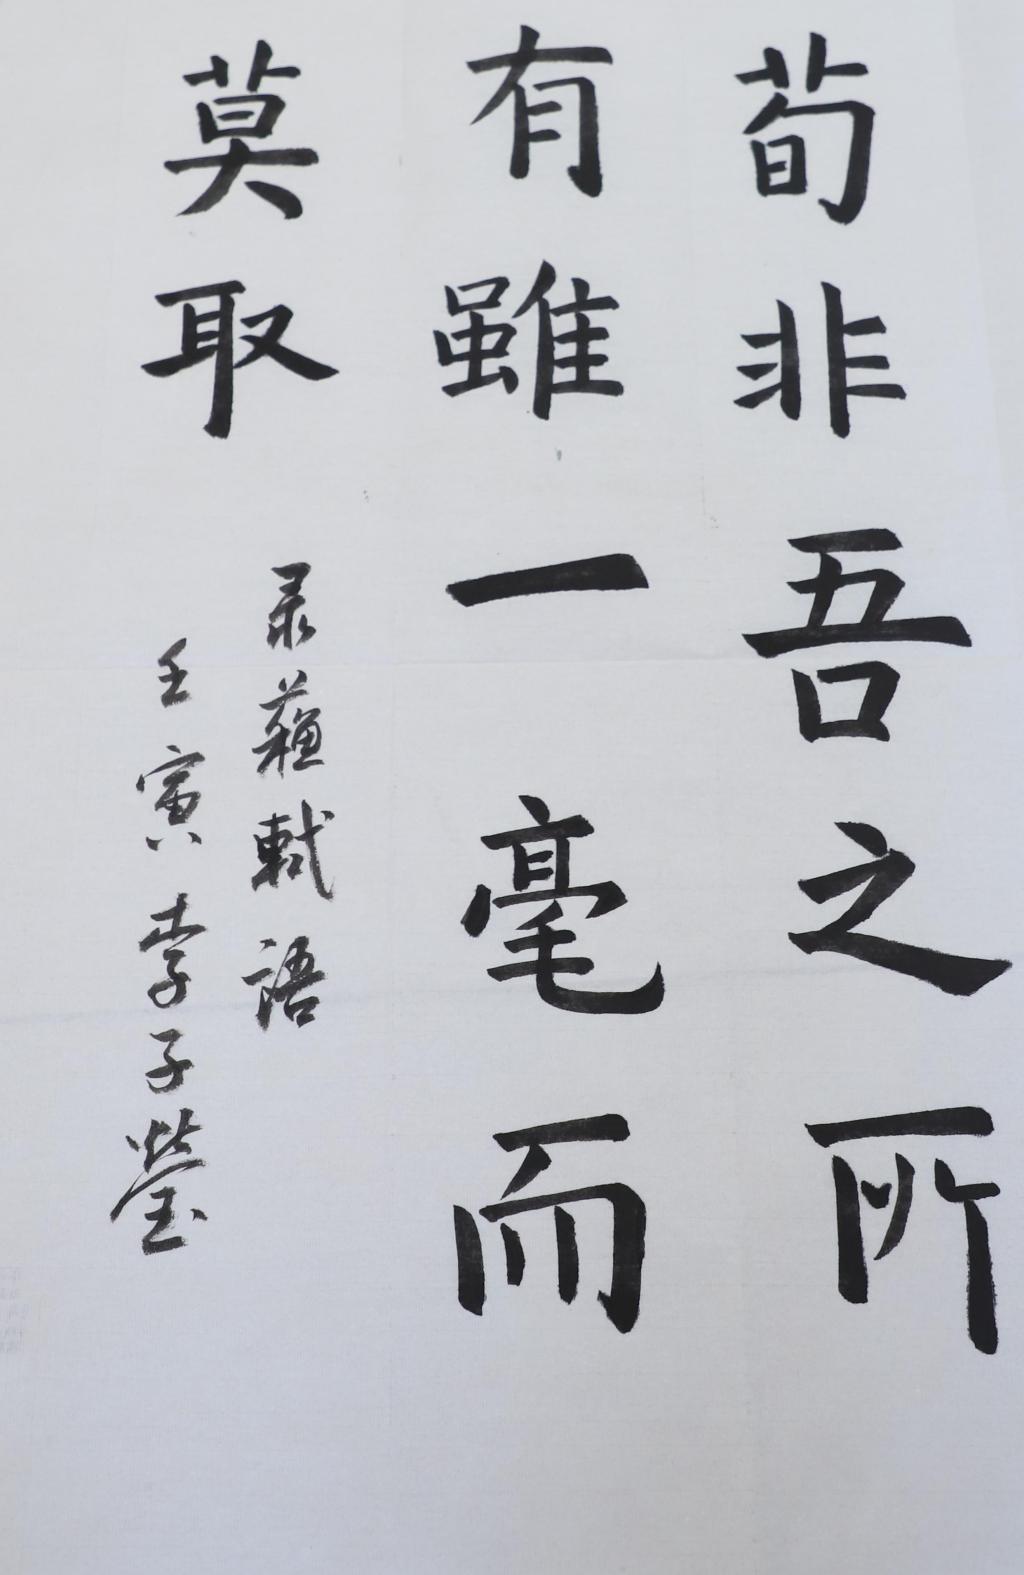 荀非吾之所
有雖一毫而
莫取
录蘓軾語
壬寅李子瑩